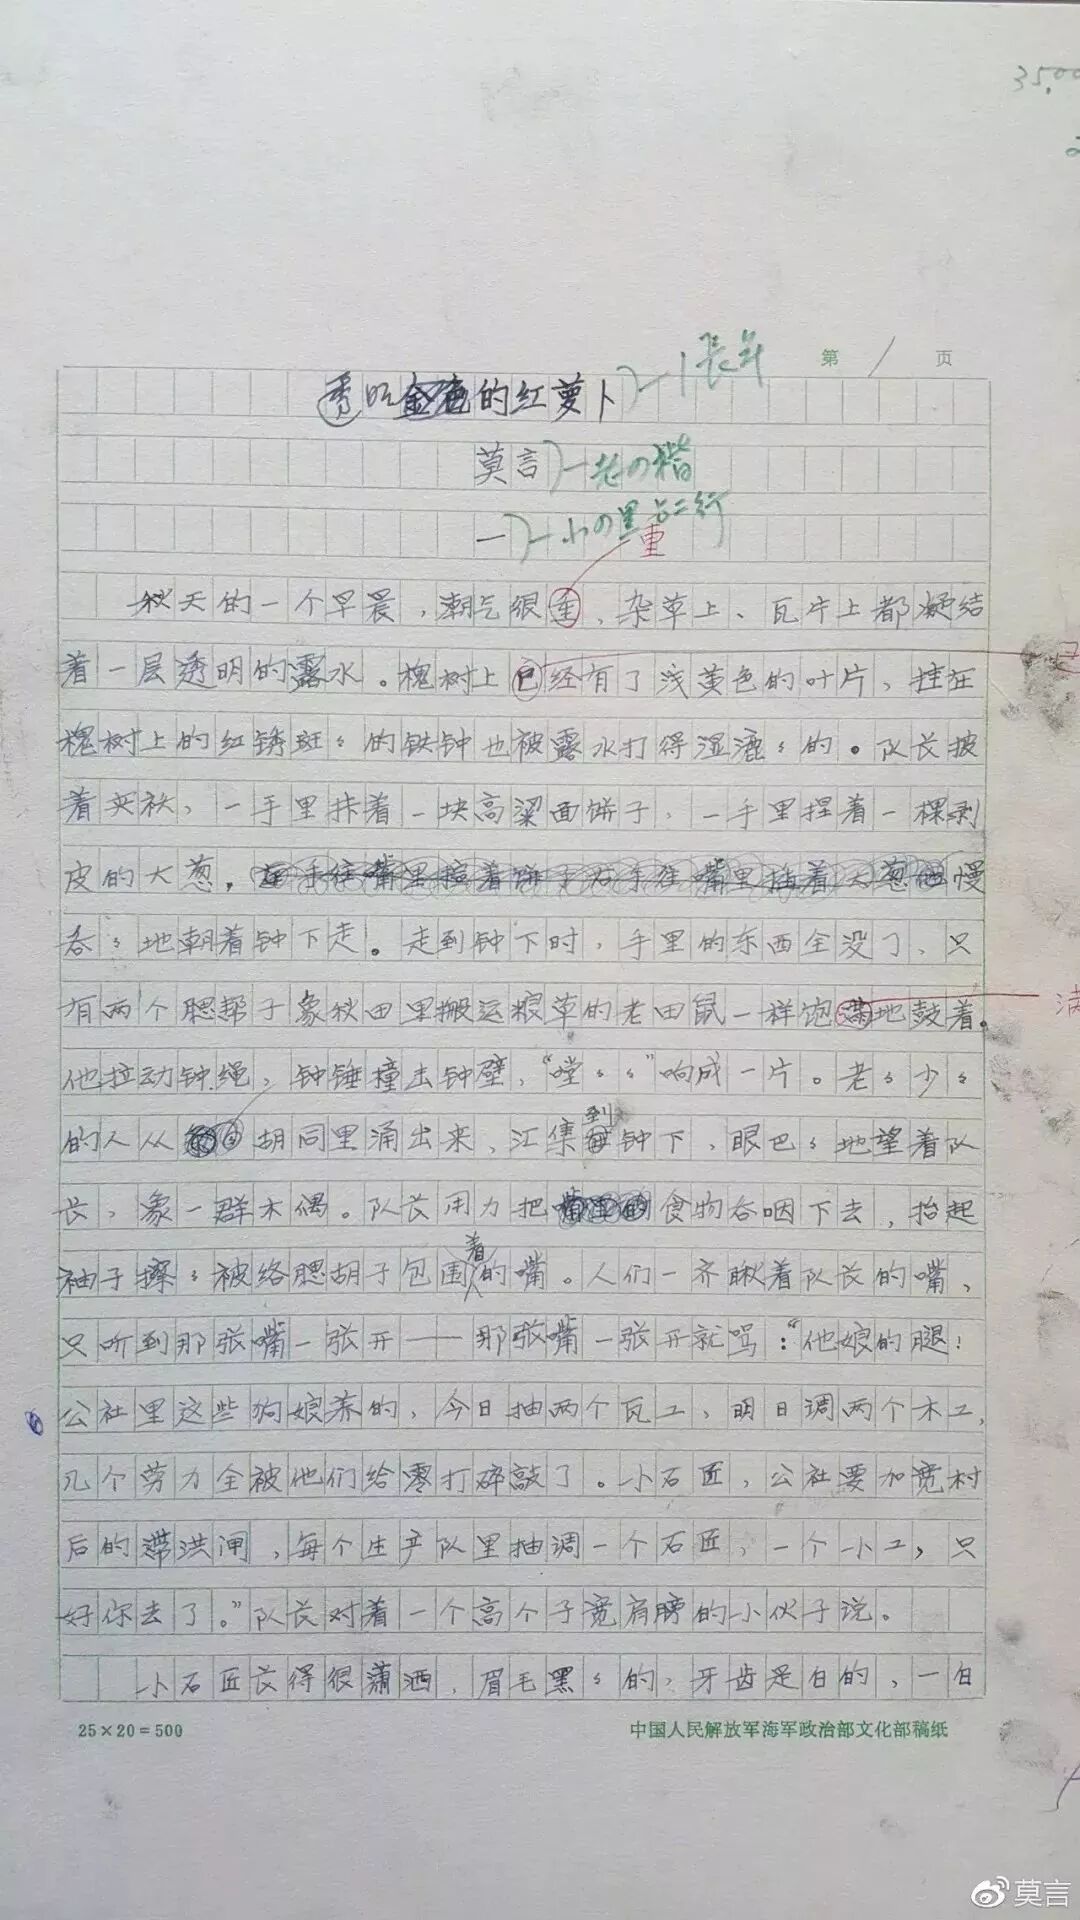 35.00
第 1 页
透明的红萝卜
莫言
一
重
秋天的一个早晨，潮气很重，杂草上、瓦片上都凝结
着一层透明的露水。槐树上已经有了浅黄色的叶片，挂在
槐树上的红锈斑々的铁钟也被露水打得湿漉々的。队长披
着夹袄，一手里拤着一块高粱面饼子，一手里捏着一棵剥
皮的大葱，慢
吞々地朝着钟下走。走到钟下时，手里的东西全没了，只
有两个腮帮子象秋田里搬运粮草的老田鼠一样饱满地鼓着。
他拉动钟绳，钟锤撞击钟壁，“噹々々”响成一片。老々少々
的人从胡同里涌出来，汇集到钟下，眼巴々地望着队
长，象一群木偶。队长用力把食物吞咽下去，抬起
袖子擦々被络腮胡子包围着的嘴。人们一齐瞅着队长的嘴，
只听到那张嘴一张开——那张嘴一张开就骂：“他娘的腿！
公社里这些狗娘养的，今日抽两个瓦工，明日调两个木工，
几个劳力全被他们给零打碎敲了。小石匠，公社要加宽村
后的滞洪闸，每个生产队里抽调一个石匠，一个小工，只
好你去了。”队长对着一个高个子宽肩膀的小伙子说。
小石匠长得很潇洒，眉毛黑々的，牙齿是白的，一白
满
25×20=500
中国人民解放军海军政治部文化部稿纸
莫言